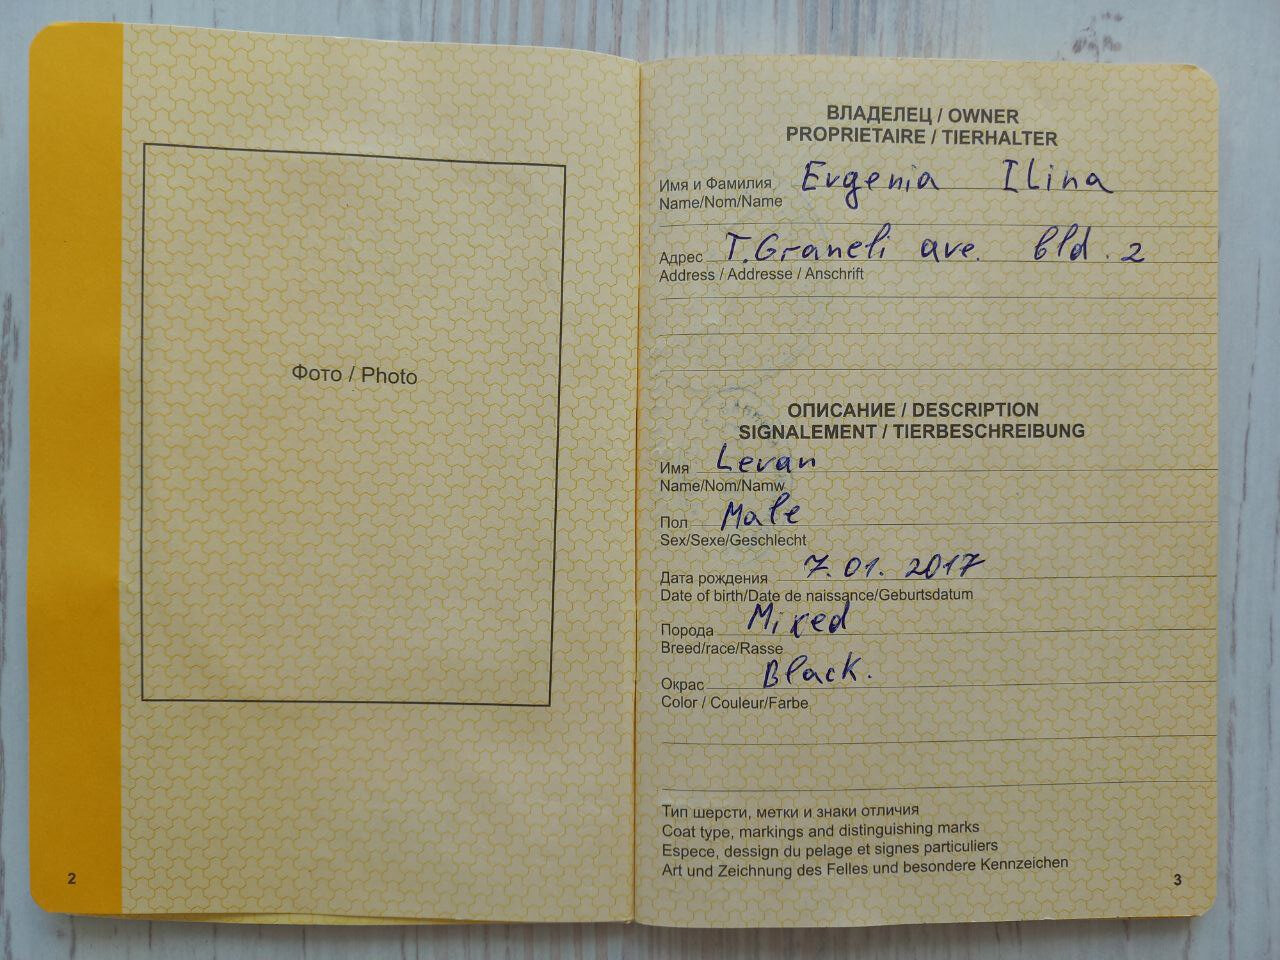 Фото / Photo
2
ВЛАДЕЛЕЦ / OWNER
PROPRIETAIRE / TIERHALTER
Имя и Фамилия Evgenia Ilina
Name/Nom/Name
Адрес T.Graneli ave. bld. 2
Address / Addresse / Anschrift
ОПИСАНИЕ / DESCRIPTION
SIGNALEMENT / TIERBESCHREIBUNG
Имя Levan
Name/Nom/Namw
Пол Male
Sex/Sexe/Geschlecht
Дата рождения 7.01.2017
Date of birth/Date de naissance/Geburtsdatum
Порода Mixed
Breed/race/Rasse
Окрас Black.
Color / Couleur/Farbe
Тип шерсти, метки и знаки отличия
Coat type, markings and distinguishing marks
Espece, dessign du pelage et signes particuliers
Art und Zeichnung des Felles und besondere Kennzeichen
3